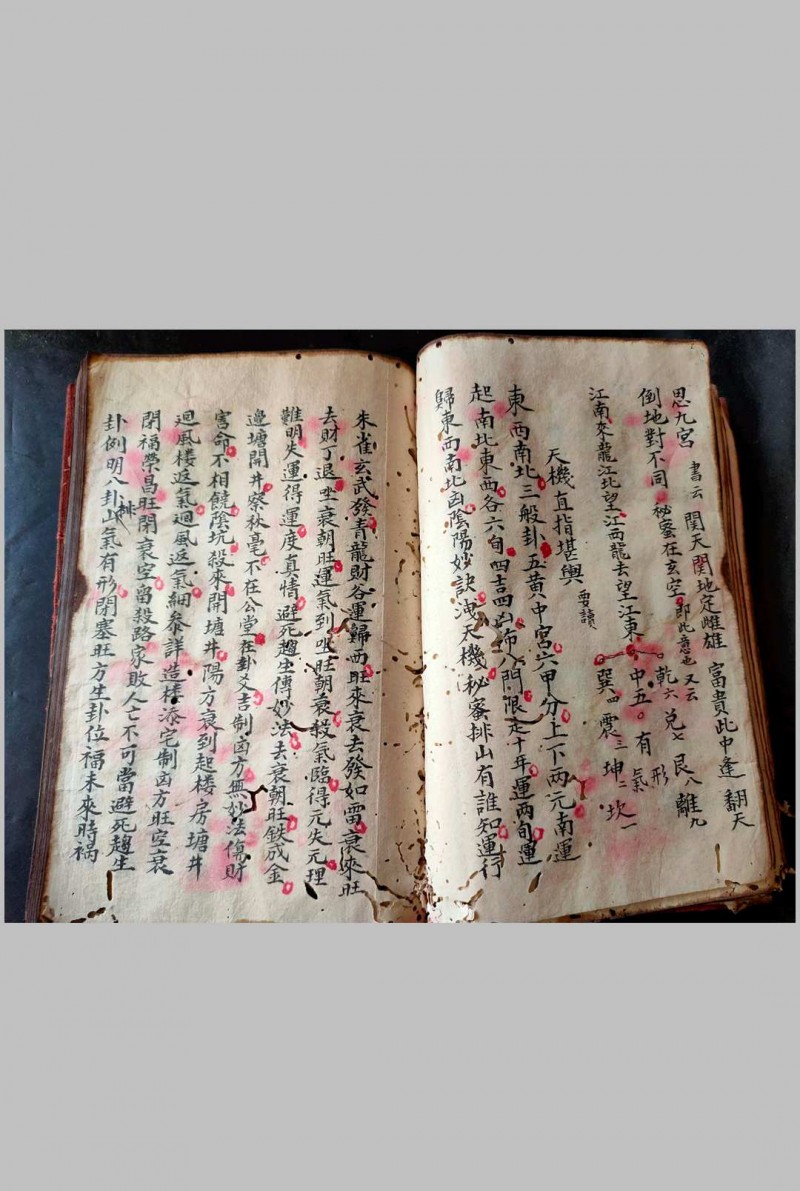 思九宮 書云 関天関地定雌雄 富貴此中逢 翻天
倒地對不同 秘蜜在玄空 即此意也 又云 乾六 兑七 艮八 離九
江南來龍江北望 江西龍去望江東 中五 有形氣 巽四 震三 坤二 坎一
天機直指堪輿 要讀
東西南北三般卦五黄中宮六甲分上下两元南運
起南北東西各六旬四吉四凶佈八門限走十年運两旬運
歸東西南北凶陰陽妙訣洩天機秘蜜排山有誰知運行
朱雀玄武發青龍財谷運歸西旺來衰去發如雷衰來旺
去財丁退坐衰朝旺運氣到坐旺朝衰殺氣臨得元失元理
難明失運得運度真情避死趨生傳妙法去衰朝旺鉄成金
邉塘開井察秋毫不在公堂在卦爻吉制凶方無妙法傷財
害命不相饒陰坑殺來開塘井陽方衰到起楼房塘井
廻風楼返氣廻風返氣細參詳造楼添宅制凶方旺空衰
閉福榮昌旺閉衰空留殺路家敗人亡不可當避死趨生
卦例明八卦排山氣有形閉塞旺方生卦位福未來時禍